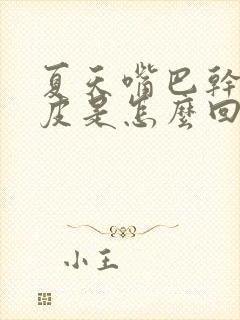 夏天嘴巴幹
皮是怎麼回
小王